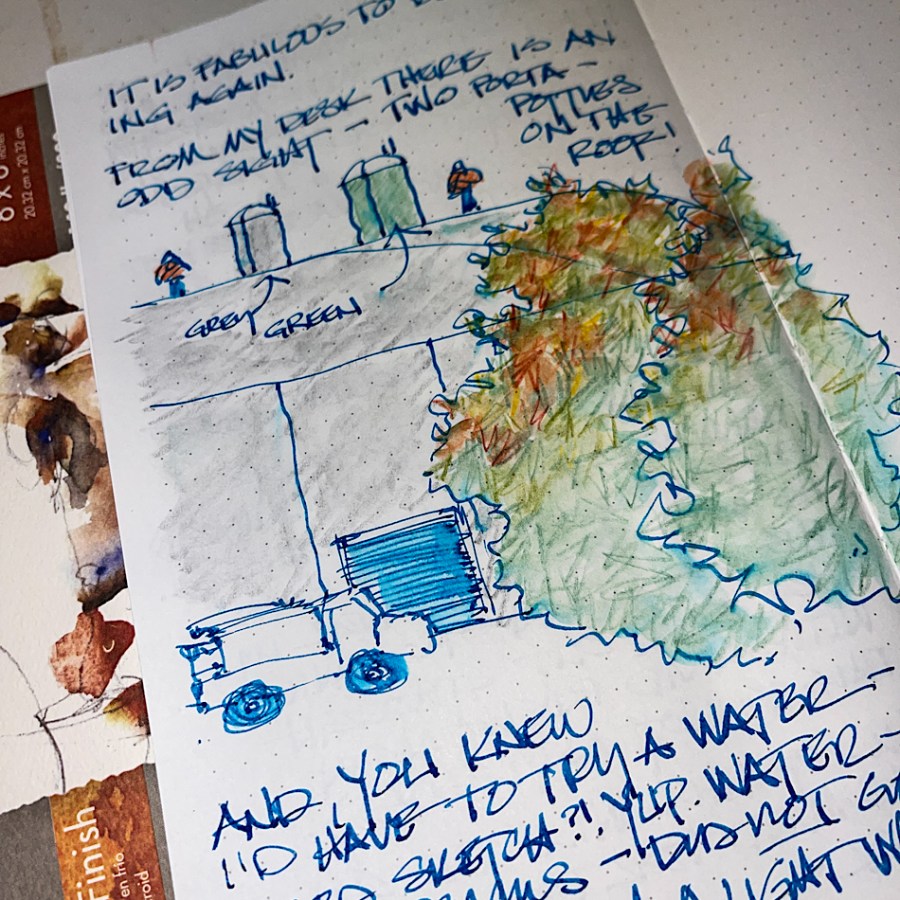 IT IS FABULOUS TO
ING AGAIN.
FROM MY DESK THERE IS AN
ODD SIGHT - TWO PORTA-
POTTIES
ON THE
ROOF!
GREY
GREEN
AND YOU KNEW
I'D HAVE TO TRY A WATER-
SKETCH?! YUP. WATER-
- DID NOT
A LIGHT
8 x 8 inches
20.32 cm x 20.32 cm
Finish
en frio